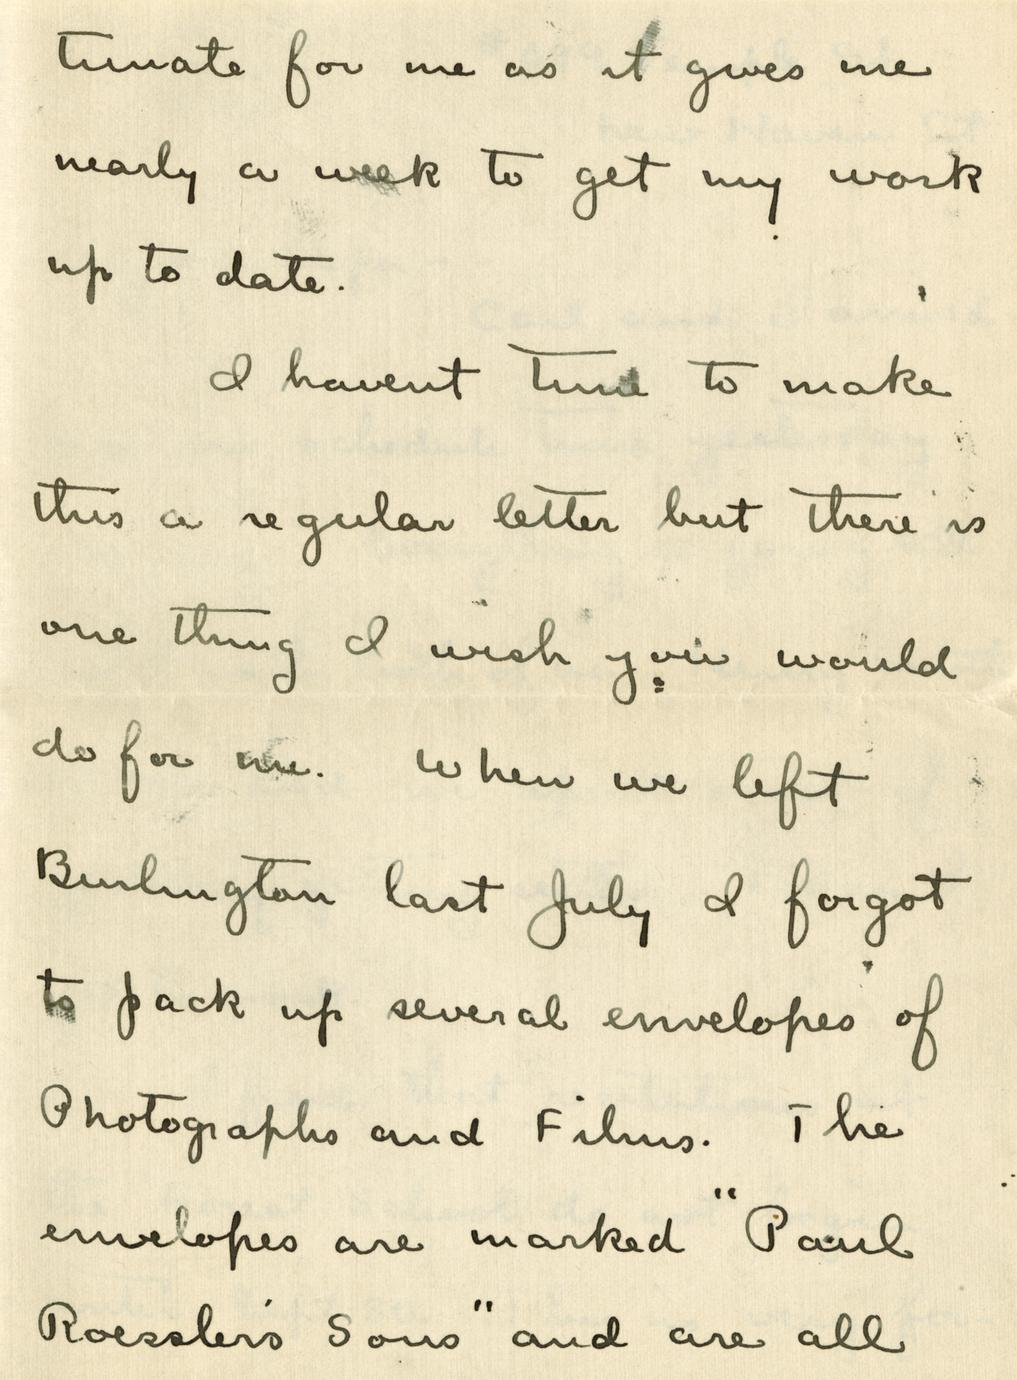 tunate for me as it gives me
nearly a week to get my work
up to date.
I havent time to make
this a regular letter but there is
one thing I wish you would
do for me. When we left
Burlington last July I forgot
to pack up several envelopes of
Photographs and Films. The
envelopes are marked "Paul
Roessler's Sons" and are all